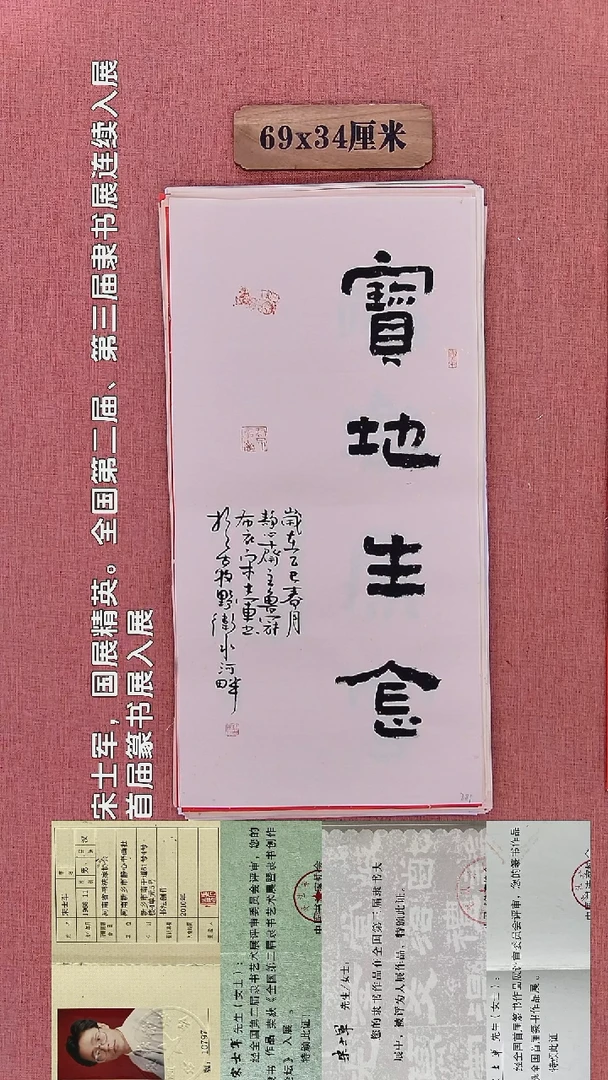 69x34厘米
宋士军，国展精英。全国第二届、第三届隶书展连续入展
首届篆书展入展
寶地生金
歲在乙巳春月
靜心齋主魯冠
布衣宋士軍書
於古牧野衛水河畔
宋士军
河南省书法家协会
2010年
10797
宋士军 先生(女士)：
经全国第二届隶书艺术展评审委员会评审，您的
隶书 作品 荣获《全国第二届隶书艺术展暨隶书创作
论坛》入展。
特颁此证
宋士军 先生/女士：
您的隶书作品在全国第三届隶书大
展中，被评为入展作品，特颁此证。
宋士军 先生(女士)：
经全国首届篆书作品展评审委员会评审，您的篆书作品
入全国首届篆书作品展。
特颁此证